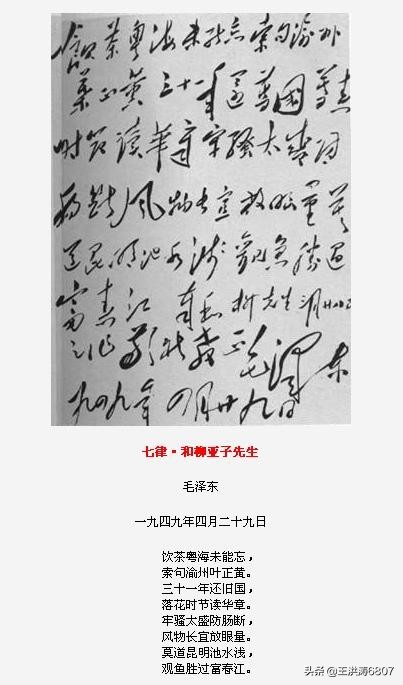 飲茶粤海未能忘索句渝州
葉正黄三十一年還舊國落花
时節讀華章牢騷太盛防
腸斷风物长宜放眼量莫
道昆明池水浅觀魚勝過
富春江 奉和柳先生三月廿八日
之作敬祈教正 毛澤东
一九四九年四月廿九日
七律·和柳亚子先生
毛泽东
一九四九年四月二十九日
饮茶粤海未能忘，
索句渝州叶正黄。
三十一年还旧国，
落花时节读华章。
牢骚太盛防肠断，
风物长宜放眼量。
莫道昆明池水浅，
观鱼胜过富春江。
头条 @王洪涛6807